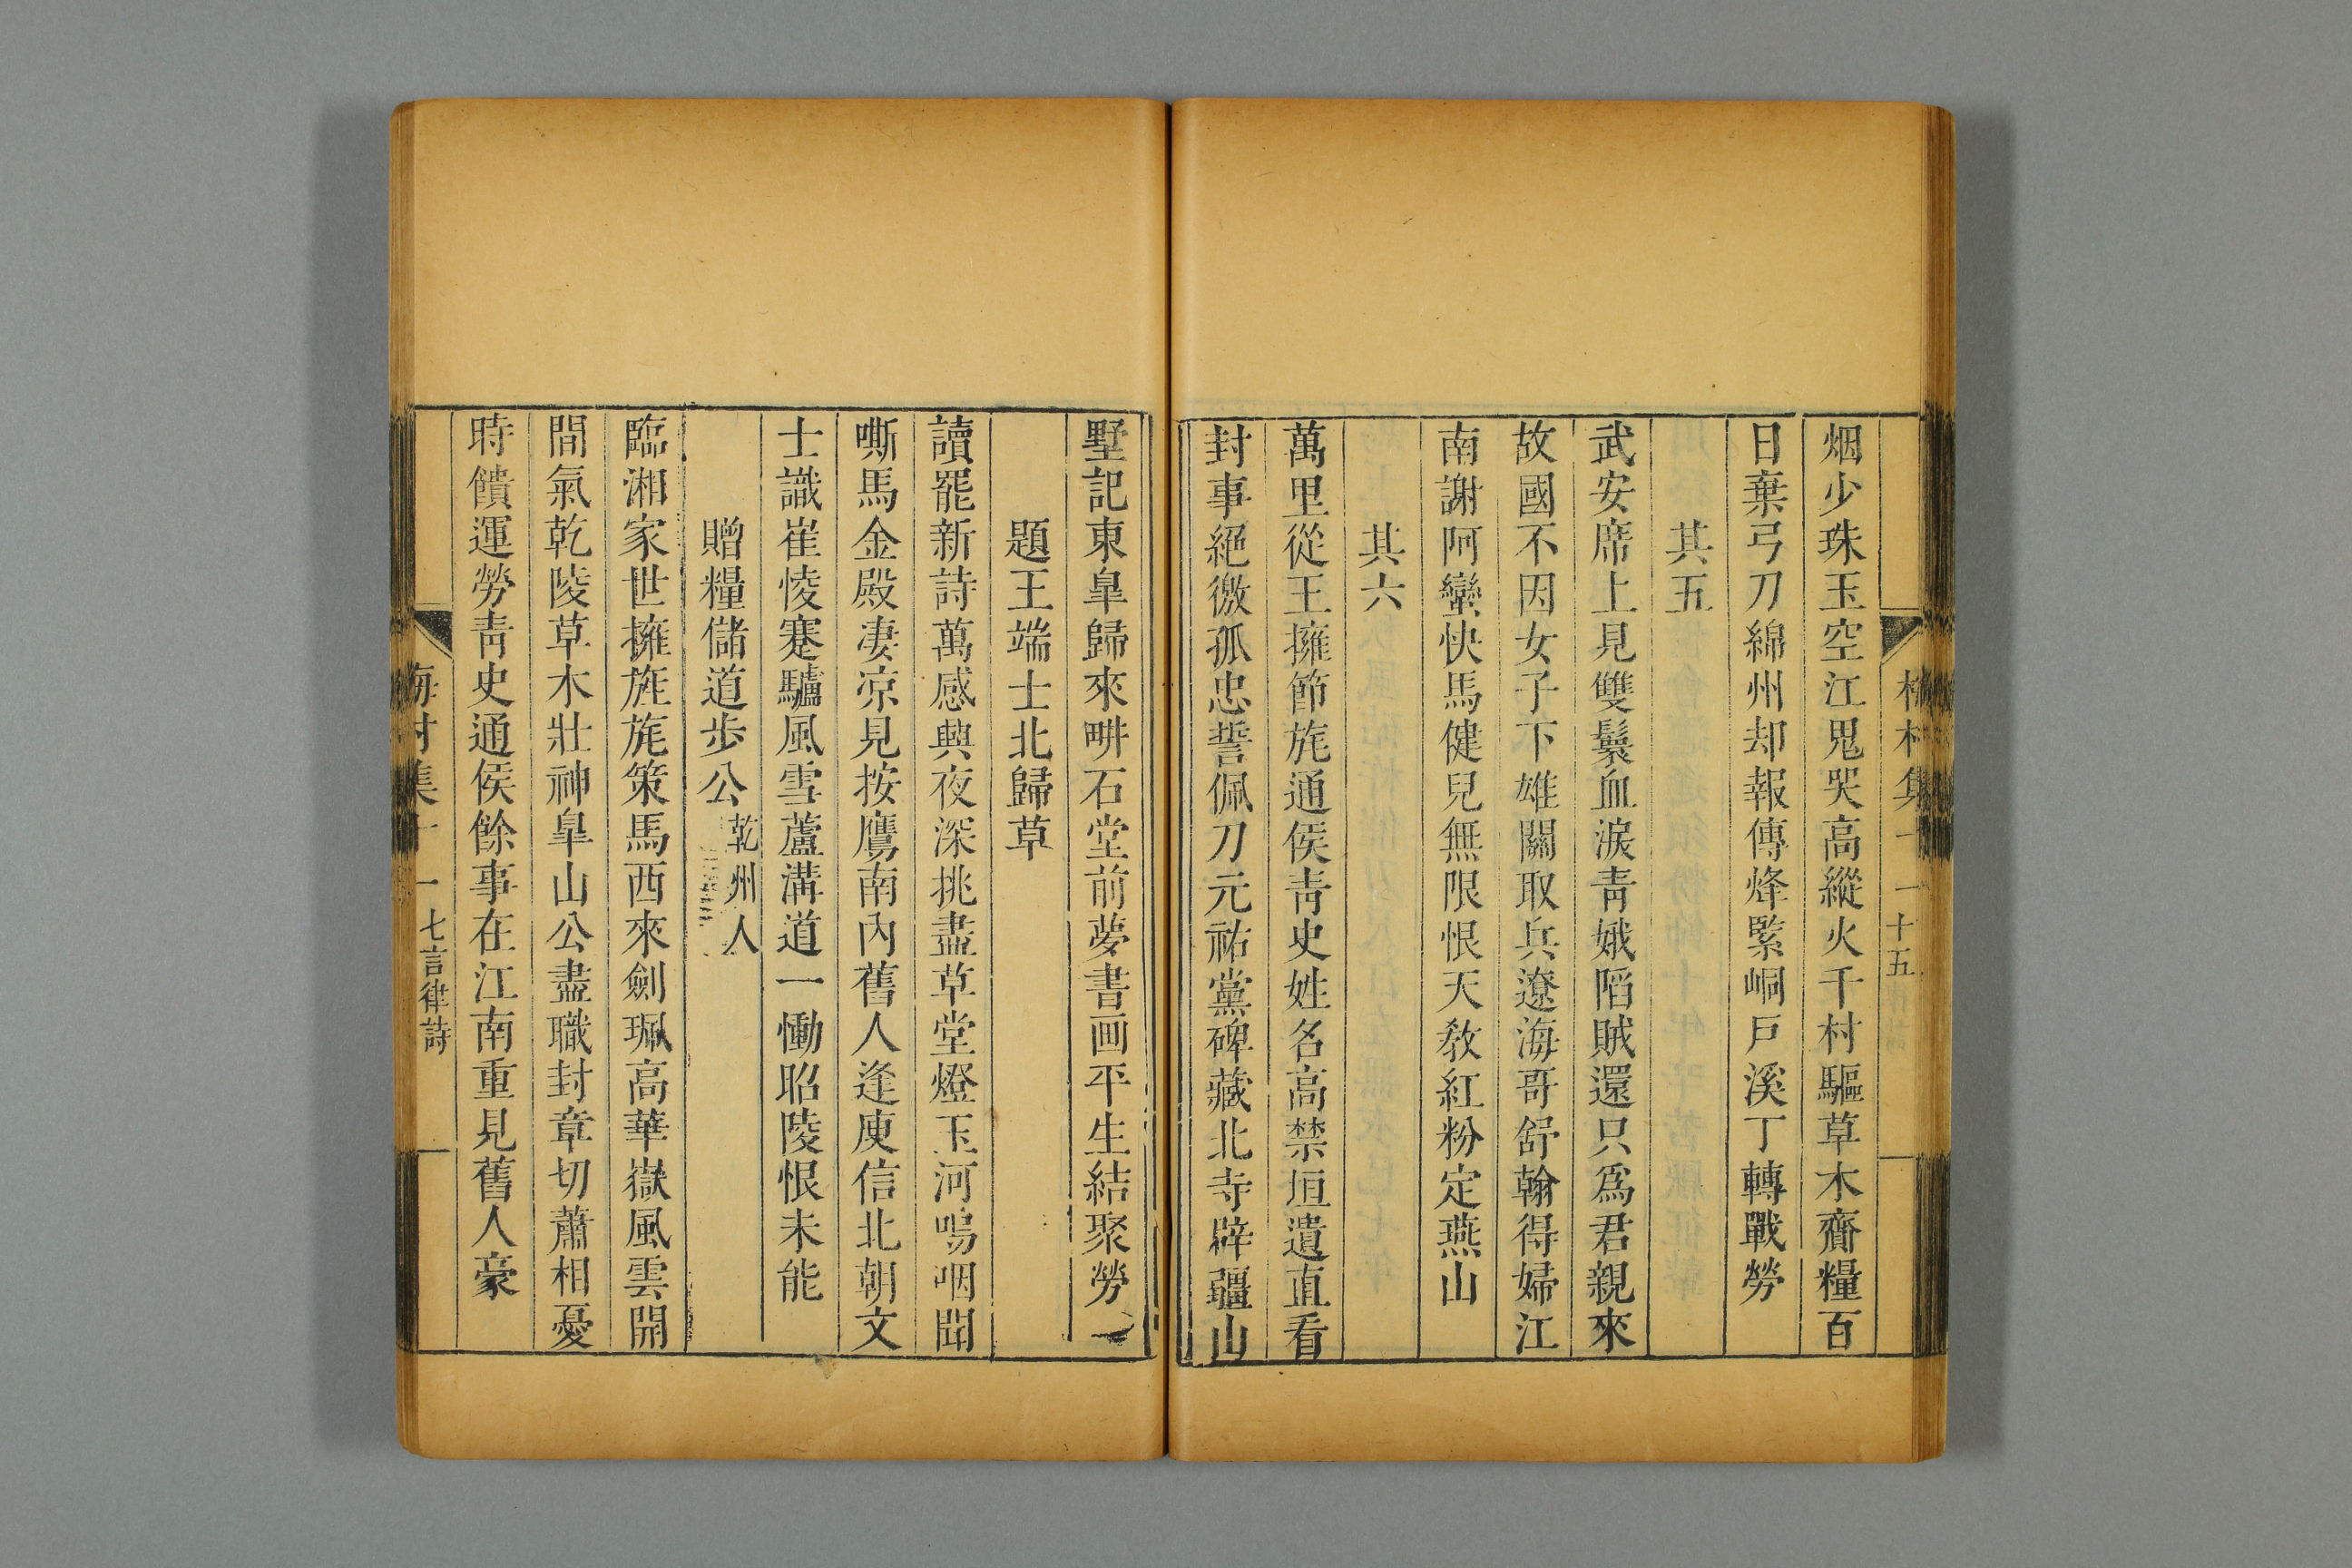 烟少珠玉空江鬼哭高縱火千村驅草木齎糧百
日棄弓刀綿州却報傳烽緊峒戸溪丁轉戰勞
其五
武安席上見雙鬟血淚靑娥陷賊還只爲君親來
故國不因女子下雄關取兵遼海哥舒翰得婦江
南謝阿蠻快馬健兒無限恨天敎紅粉定燕山
其六
萬里從王擁節旄通侯靑史姓名高禁垣遺直看
封事絕徼孤忠誓佩刀元祐黨碑藏北寺辟疆山
墅記東臯歸來畊石堂前夢書画平生結聚勞
題王端士北歸草
讀罷新詩萬感興夜深挑盡草堂燈玉河嗚咽聞
嘶馬金殿凄凉見按鷹南內舊人逢庾信北朝文
士識崔㥄蹇驢風雪蘆溝道一慟昭陵恨未能
贈糧儲道步公乾州人
臨湘家世擁旌旄策馬西來劍珮高華嶽風雲開
間氣乾陵草木壯神臯山公盡職封章切蕭相憂
時饋運勞靑史通侯餘事在江南重見舊人豪
梅村集十一 十五
梅村集十一 七言律詩